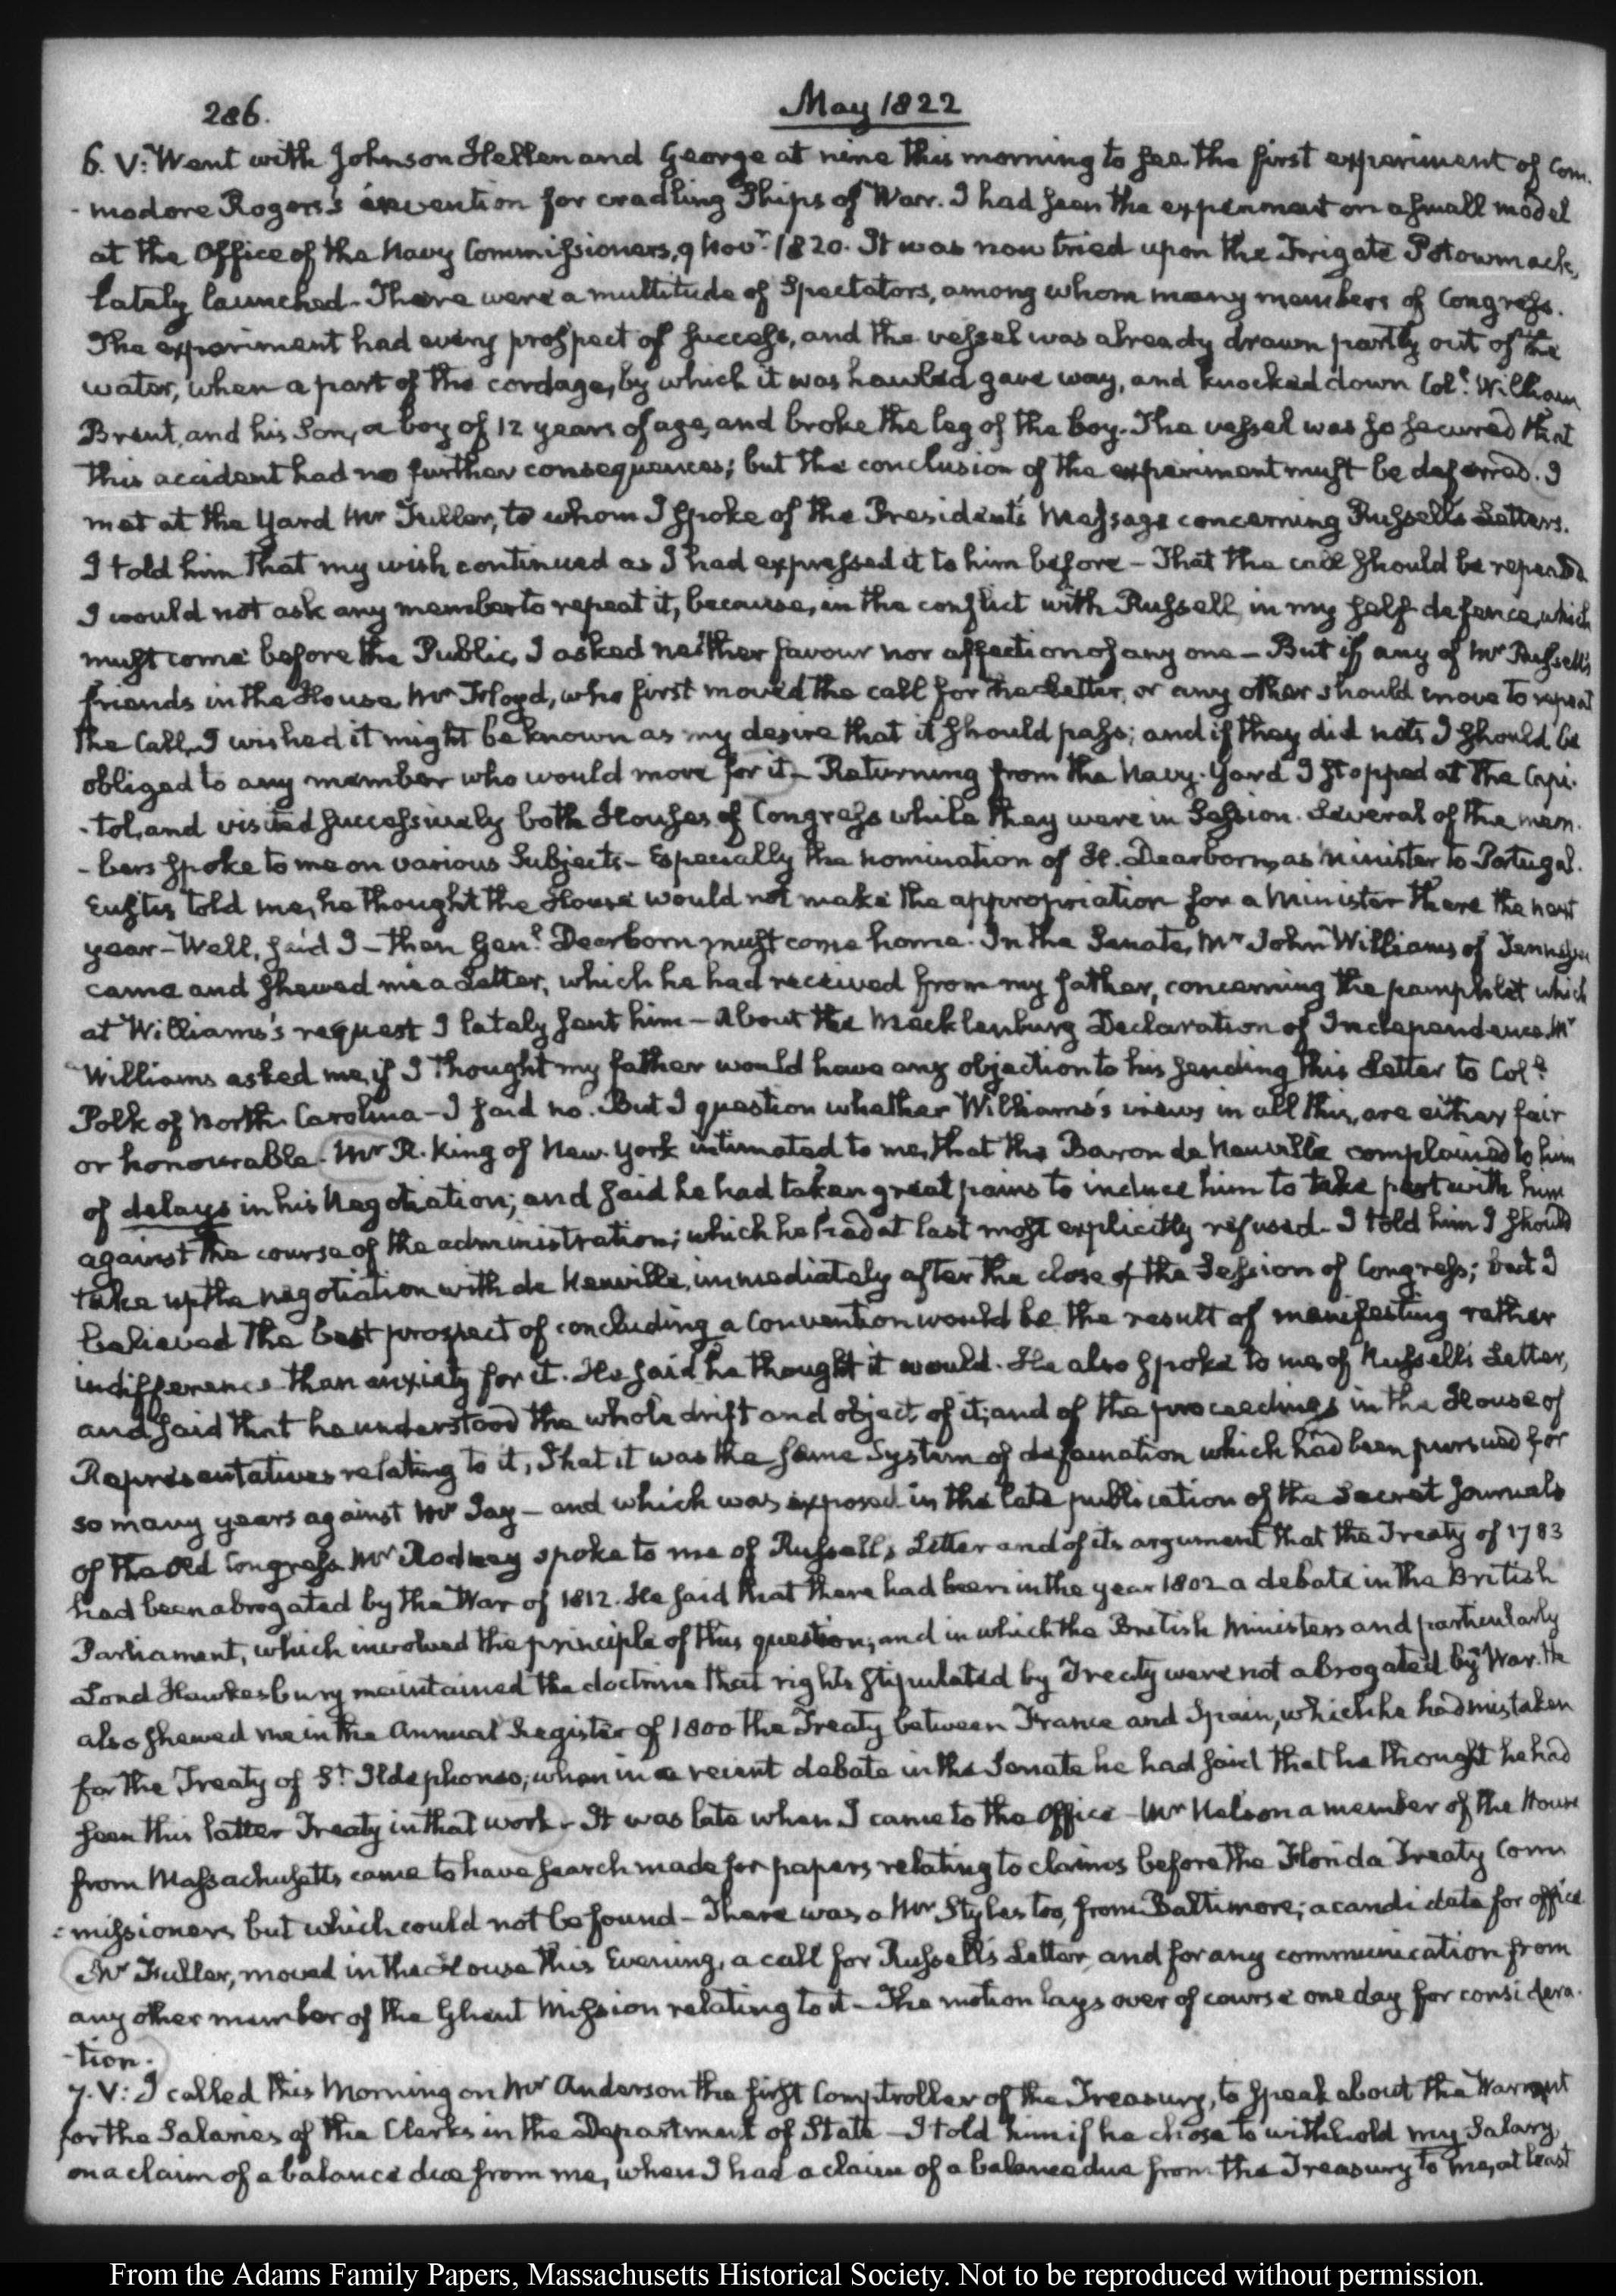 286.
May 1822
6. V: Went with Johnson Hellen and George at nine this morning to see the first experiment of Com-
-modore Rogers's invention for cradling Ships of War. I had seen the experiment on a small model
at the Office of the Navy Commissioners, 9 Novr. 1820. It was now tried upon the Frigate Potowmack,
lately launched - There were a multitude of Spectators, among whom many members of Congress.
The experiment had every prospect of success, and the vessel was already drawn partly out of the
water, when a part of the cordage, by which it was hawled gave way, and knocked down Coll. William
Brent, and his Son, a boy of 12 years of age, and broke the leg of the boy. The vessel was so secured that
this accident had no further consequences; but the conclusion of the experiment must be deferred. I
met at the Yard Mr Fuller, to whom I spoke of the President's Message concerning Russell's Letters.
I told him that my wish continued as I had expressed it to him before - That the call should be repeated
I would not ask any member to repeat it, because, in the conflict with Russell, in my self-defence, which
must come before the Public, I asked neither favour nor affection of any one - But if any of Mr Russell's
friends in the House, Mr Floyd, who first moved the call for the Letter, or any other should move to repeat
the Call, I wished it might be known as my desire that it should pass; and if they did not, I should be
obliged to any member who would move for it - Returning from the Navy-Yard I stopped at the Capi-
-tol, and visited successively both Houses of Congress while they were in Session. Several of the mem-
-bers spoke to me on various Subjects - Especially the nomination of H. Dearborn, as Minister to Portugal.
Eustis told me, he thought the House would not make the appropriation for a Minister there the next
year - Well, said I - then Genl. Dearborn must come home. In the Senate, Mr John Williams of Tennessee
came and shewed me a Letter, which he had received from my father, concerning the pamphlet which
at Williams's request I lately sent him - About the Mecklenburg Declaration of Independence. Mr
Williams asked me, if I thought my father would have any objection to his sending this Letter to Coll.
Polk of North-Carolina - I said no. But I question whether Williams's views in all this, are either fair
or honourable. Mr R. King of New-York intimated to me, that the Baron de Neuville complained to him
of delays in his Negotiation; and said he had taken great pains to induce him to take part with him
against the course of the administration; which he had at last most explicitly refused - I told him I should
take up the negotiation with de Neuville, immediately after the close of the Session of Congress; but I
believed the best prospect of concluding a Convention would be the result of manifesting rather
indifference than anxiety for it. He said he thought it would. He also spoke to me of Russell's Letter,
and said that he understood the whole drift and object of it; and of the proceedings in the House of
Representatives relating to it, That it was the same System of defamation which had been pursued for
so many years against Mr Jay - and which was exposed in the late publication of the Secret Journals
of the old Congress. Mr Rodney spoke to me of Russell's Letter and of its argument that the Treaty of 1783
had been abrogated by the War of 1812. He said that there had been in the year 1802 a debate in the British
Parliament, which involved the principle of this question, and in which the British Ministers and particularly
Lord Hawkesbury maintained the doctrine that rights stipulated by Treaty were not abrogated by War. He
also shewed me in the Annual Register of 1800 the Treaty between France and Spain, which he had mistaken
for the Treaty of St. Ildephonso; when in a recent debate in the Senate he had said that he thought he had
seen this latter Treaty in that work - It was late when I came to the Office - Mr Nelson a member of the House
from Massachusetts came to have search made for papers relating to claims before the Florida Treaty Com-
-missioners but which could not be found - There was a Mr Styles too, from Baltimore; a candidate for office
Mr Fuller, moved in the House this Evening, a call for Russell's Letter, and for any communication from
any other member of the Ghent Mission relating to it - The motion lays over of course one day for considera-
-tion.
7. V: I called this Morning on Mr Anderson the first Comptroller of the Treasury, to speak about the Warrant
for the Salaries of the Clerks in the Department of State - I told him if he chose to withhold my Salary
on a claim of a balance due from me, when I had a claim of a balance due from the Treasury to me, at least
From the Adams Family Papers, Massachusetts Historical Society. Not to be reproduced without permission.